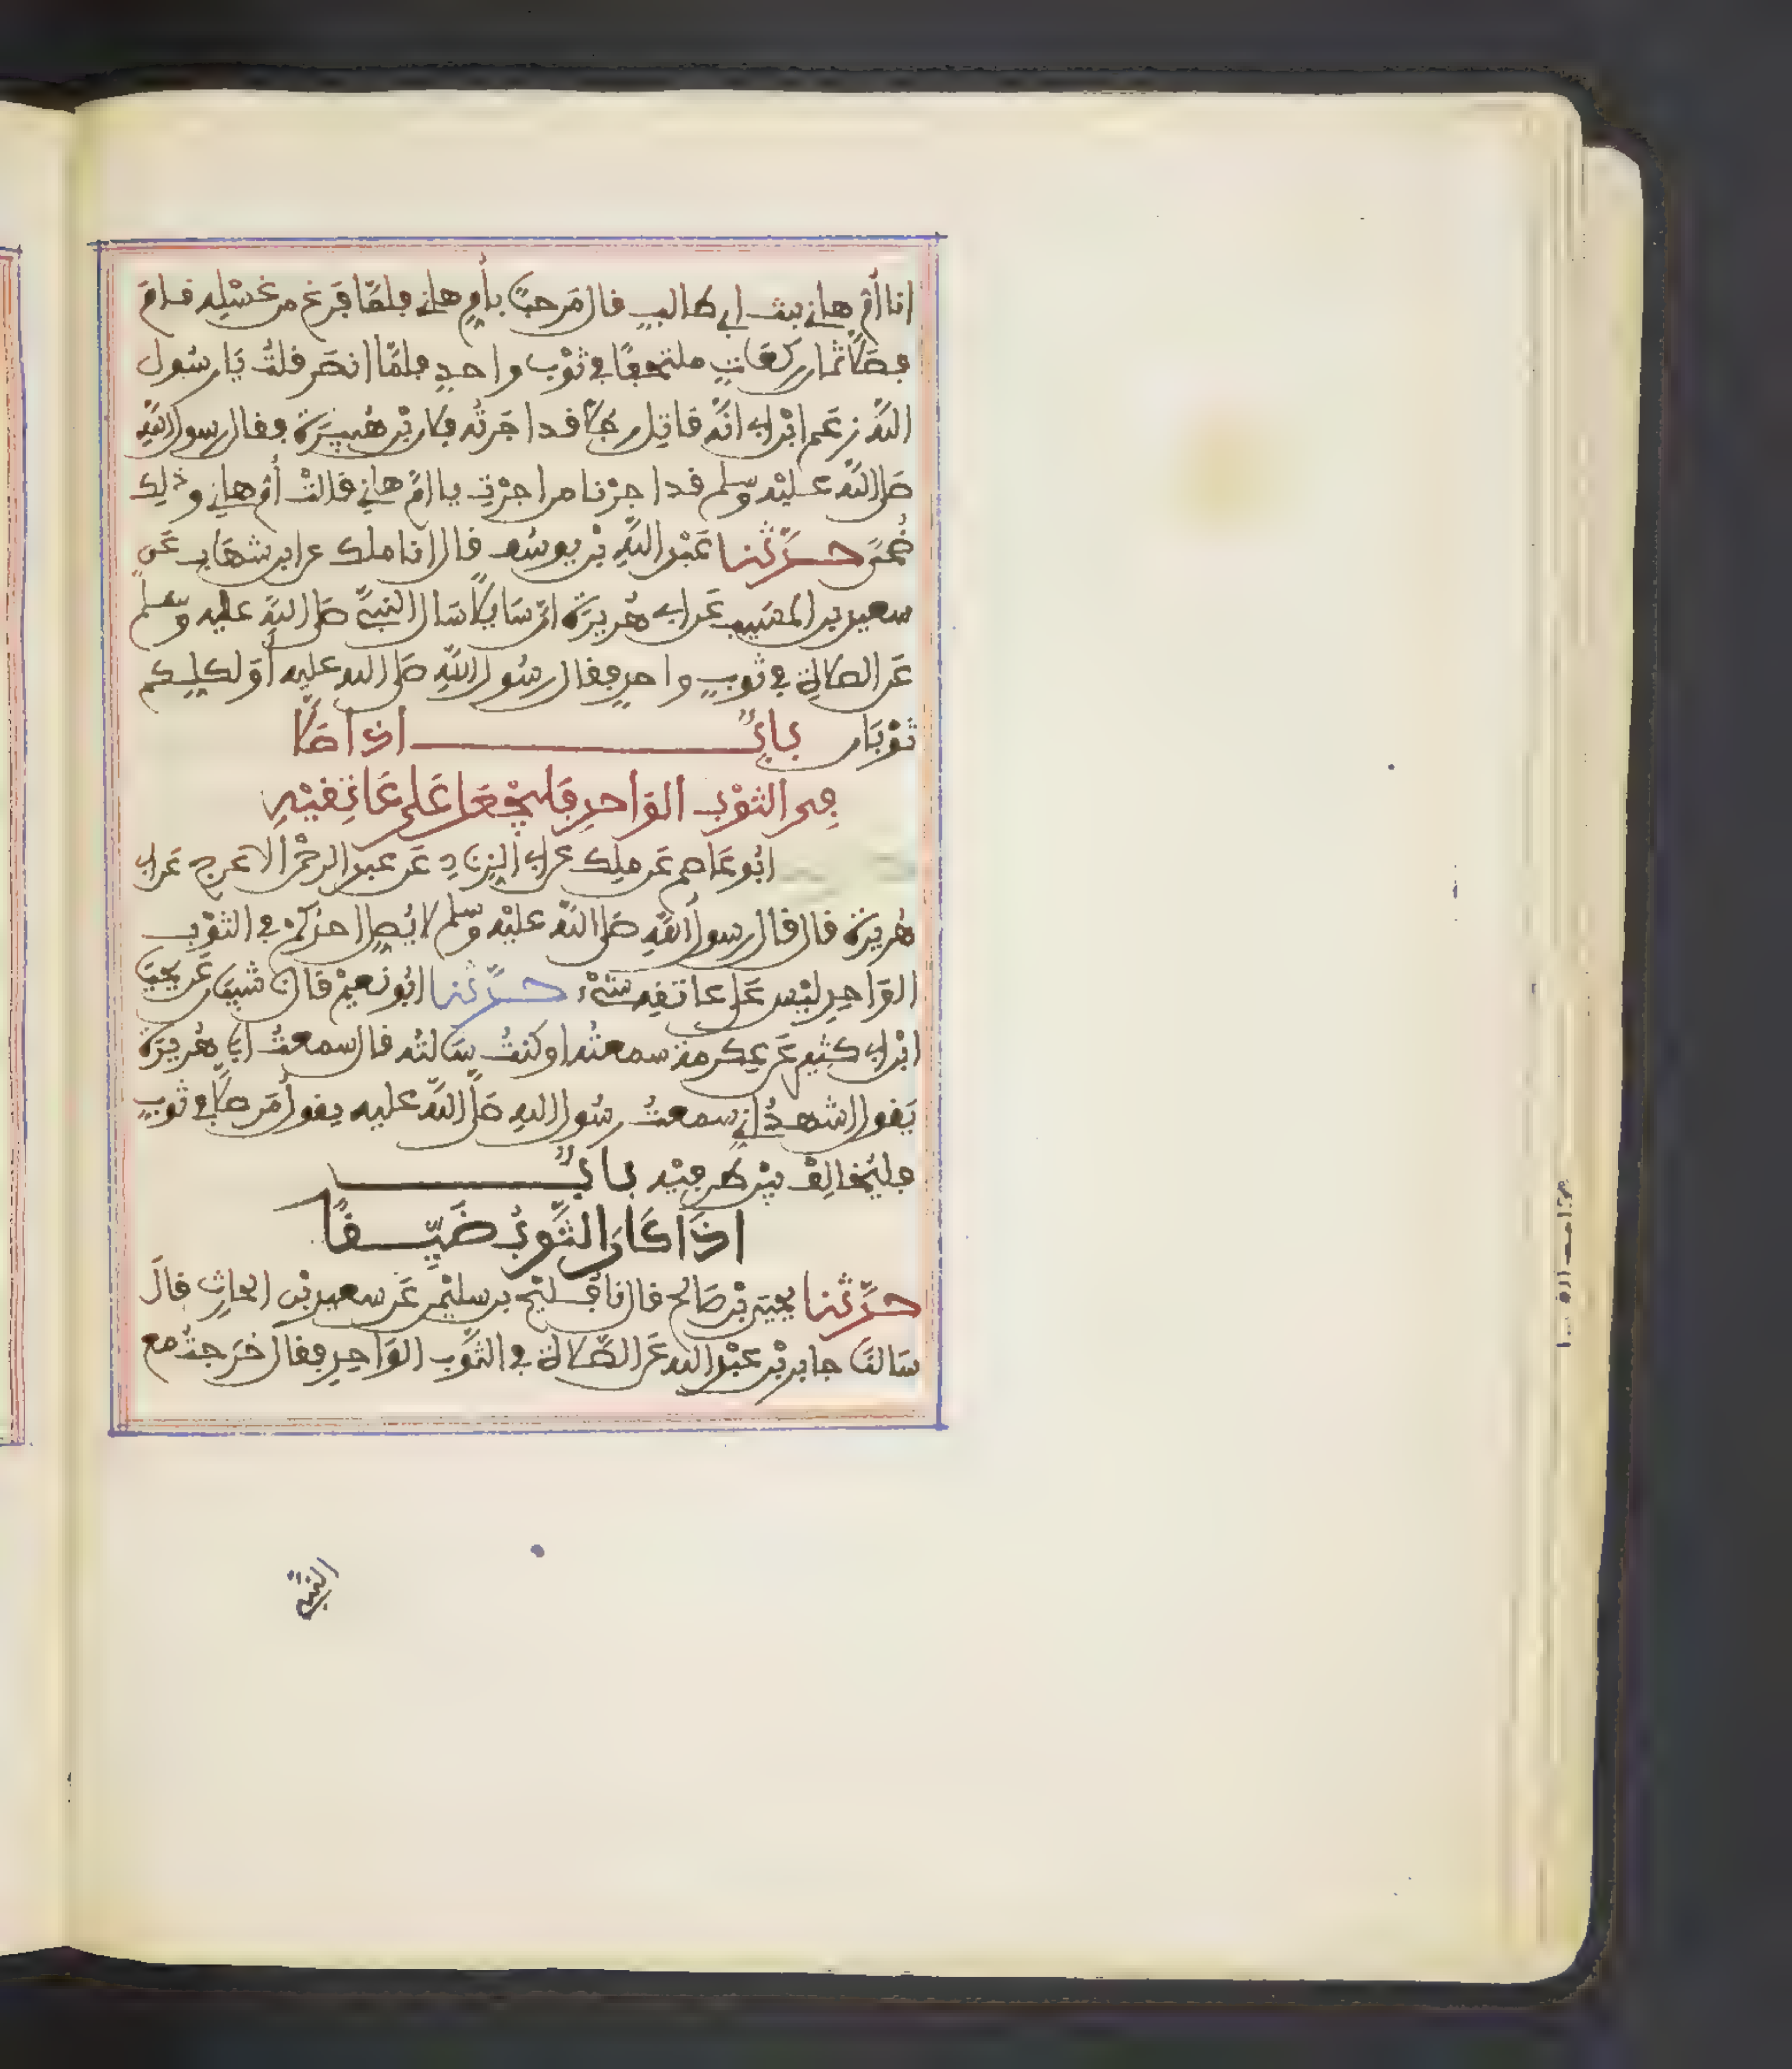 انا أم هانئ بنت ابي طالب فال مرحبًا بأم هانئ فلمّا فرغ من غسله فام
فصلى ثمان ركعات ملتحفًا في ثوب واحد فلمّا انصرف فلت يا رسول
الله زعم ابن ابي انّه قاتل رجلا فد اجرته فلان بن هبيرة ففال رسول الله
صلى الله عليه وسلم فد اجرنا من اجرت يا ام هانئ فالت أم هانئ وذلك
ضحى حدّثنا عبد الله بن يوسف فال انا ملك عن ابن شهاب عن
سعيد بن المسيب عن ابي هريرة انّ سايلا سال النبيّ صلى الله عليه وسلم
عن الصلاة في ثوب واحد ففال رسول الله صلى الله عليه أو لكلكم
ثوبان باب اذا صلى
في الثوب الواحد فليجعل على عاتفيه
ابو عاصم عن ملك عن ابي الزناد عن عبد الرحمن الاعرج عن ابي
هريرة فال فال رسول الله صلى الله عليه وسلم لا يصل احدكم في الثوب
الواحد ليس على عاتفه شيء حدّثنا ابو نعيم فال نا شيبان عن يحيى
ابن ابي كثير عن عكرمة سمعته او كنت سالته فال سمعت ابا هريرة
يفول اشهد اني سمعت رسول الله صلى الله عليه يفول من صلى في ثوب
فليخالف بين طرفيه باب
اذا كان الثّوب ضيّفًا
حدّثنا يحيى بن صالح فال نا فليح بن سليمن عن سعيد بن الحارث فال
سالنا جابر بن عبد الله عن الصّلاة في الثّوب الواحد ففال خرجت مع
النبيّ